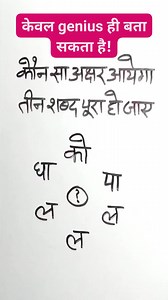 केवल genius ही बता
सकता है!
कौन सा अक्षर आयेगा
तीन शब्द पूरा हो जाए
को
धा पा
?
ल ल
ल